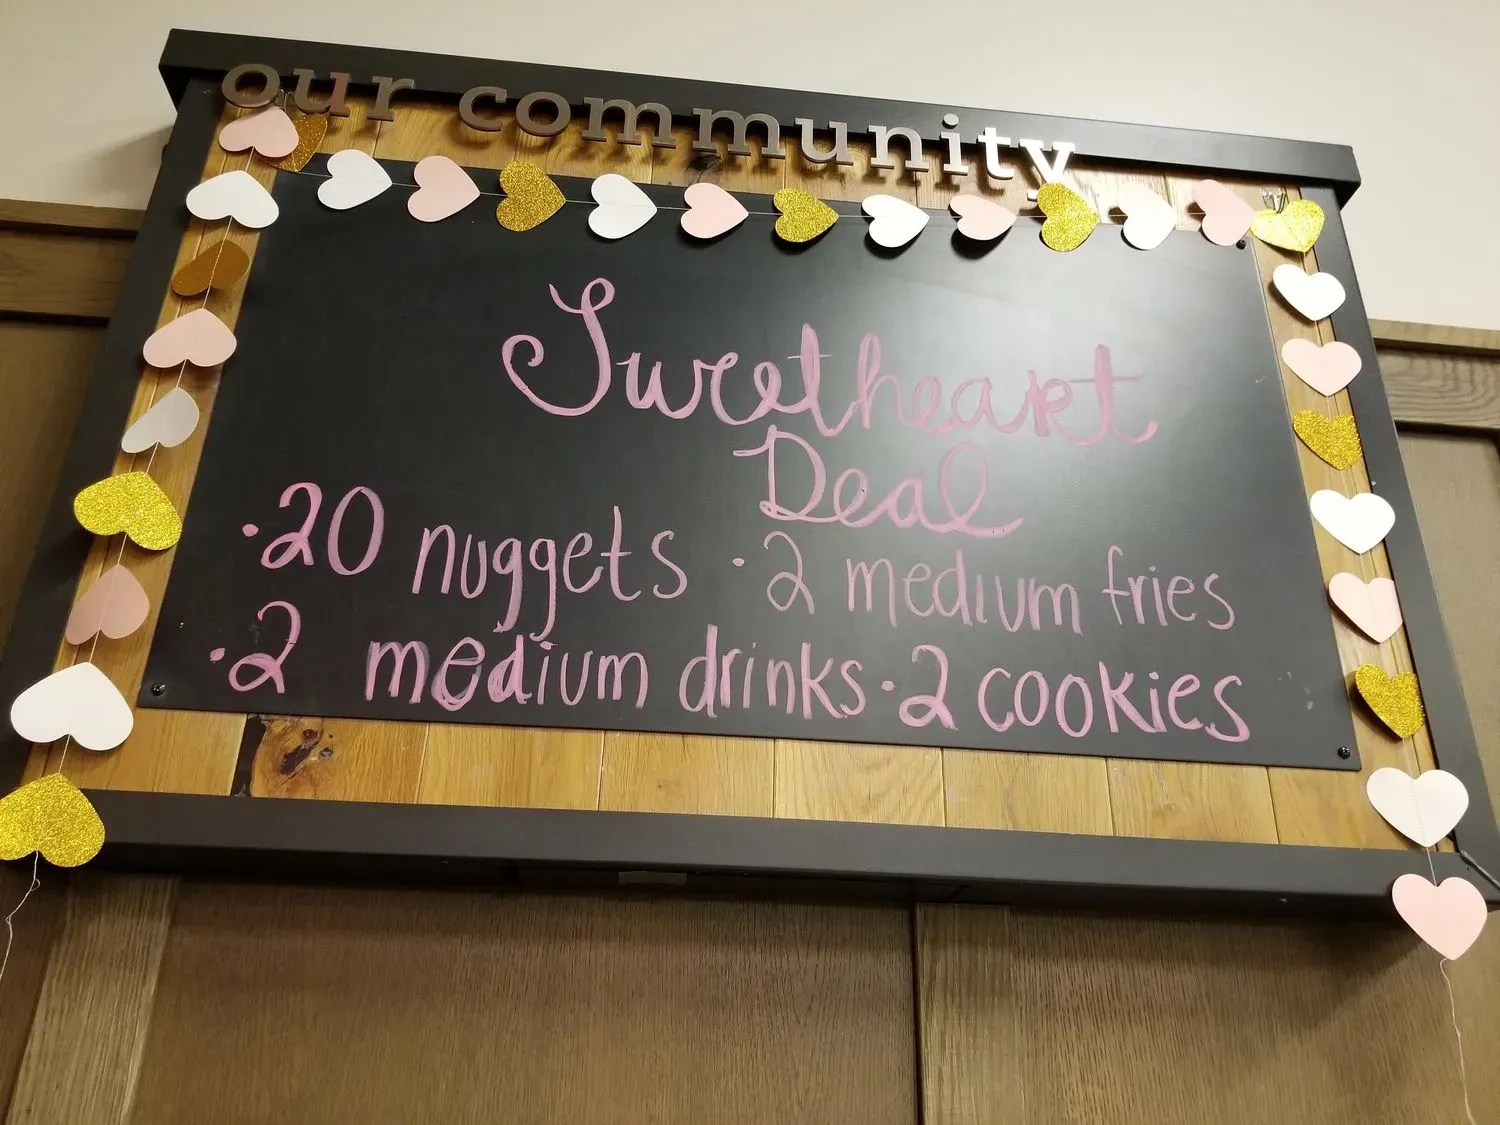 our community
Sweetheart
Deal
• 20 nuggets • 2 medium fries
• 2 medium drinks • 2 cookies